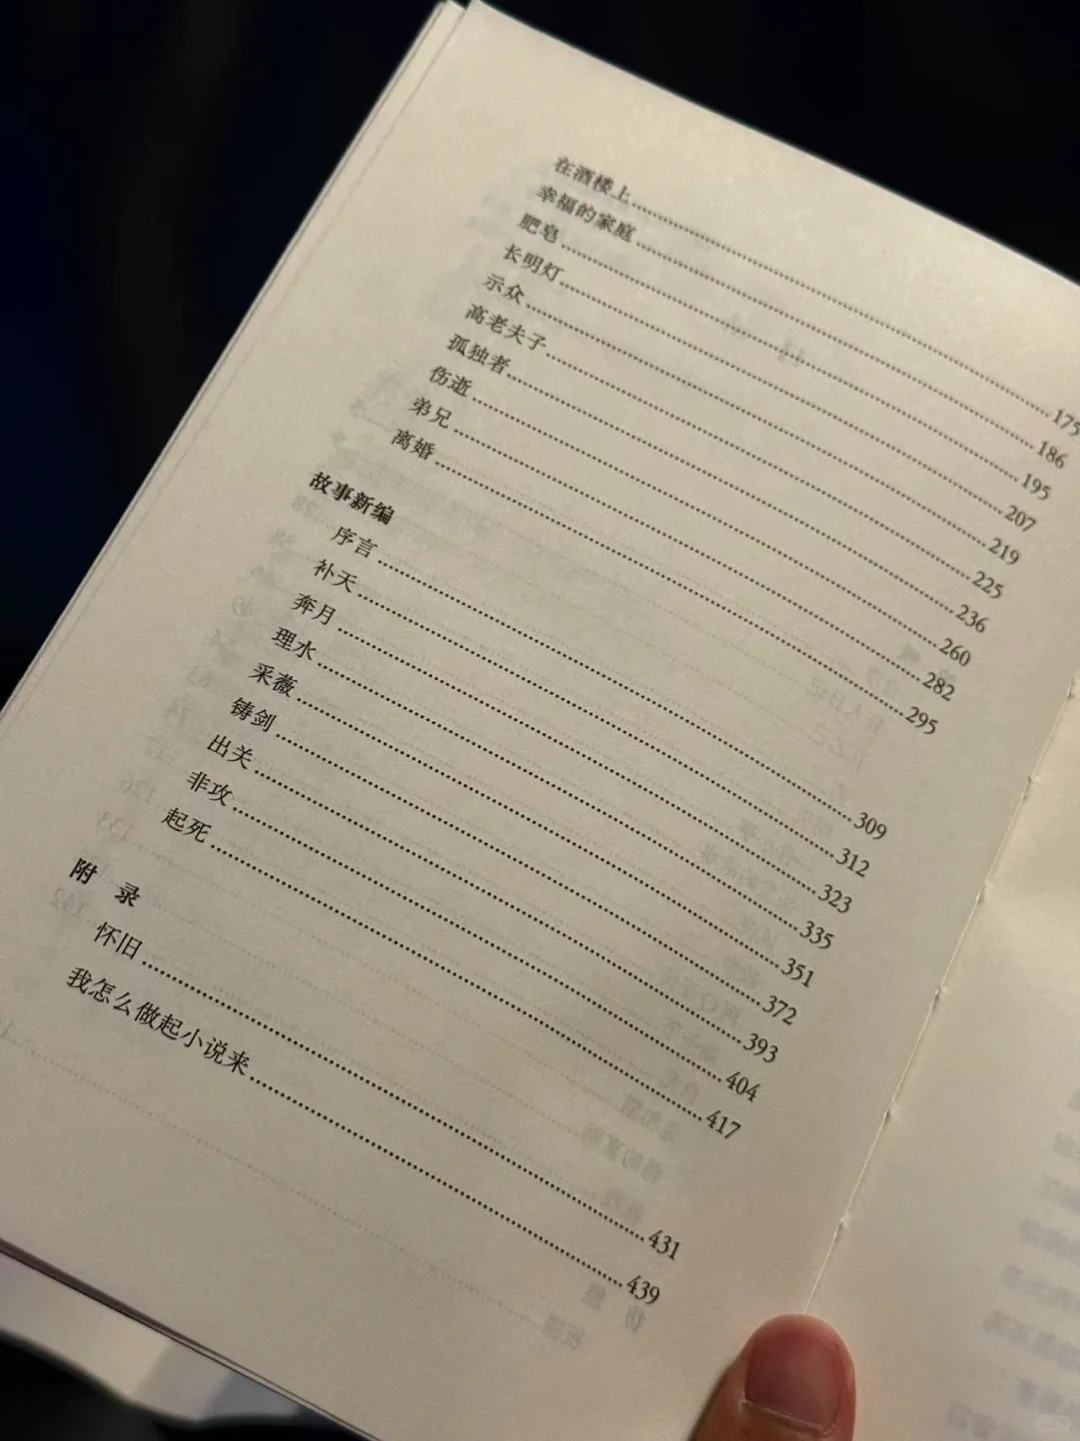 在酒楼上……175
幸福的家庭……186
肥皂……195
长明灯……207
示众……219
高老夫子……225
孤独者……236
伤逝……260
弟兄……282
离婚……295
故事新编
序言……309
补天……312
奔月……323
理水……335
采薇……351
铸剑……372
出关……393
非攻……404
起死……417
附 录
怀旧……431
我怎么做起小说来……439